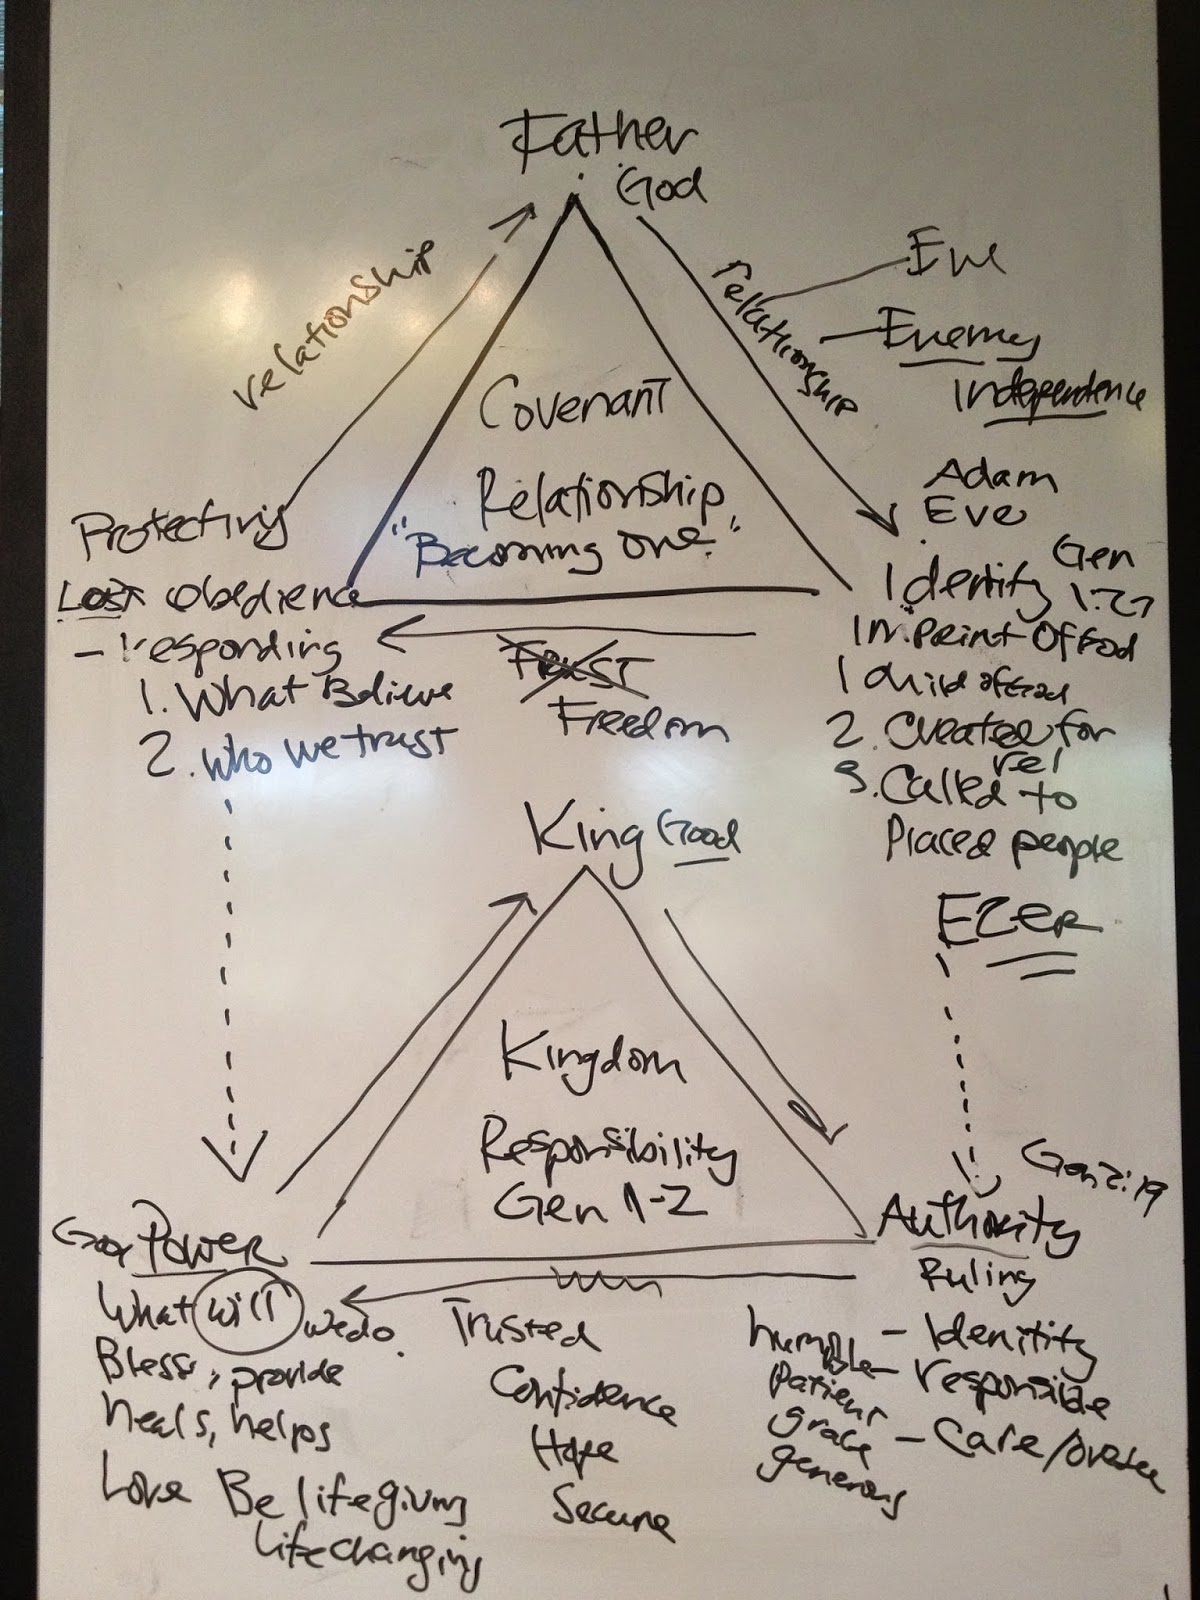 Father
God
relationship
relationship
Eve
Enemy
Independence
Covenant
Relationship
"Becoming one"
Adam
Eve
Protecting
Lost Obedience
- responding
1. What Believe
2. who we trust
Trust
Freedom
Identity Gen 1:27
Imprint Of God
1 child of God
2. Created for rel
3. Called to
Placed people
EZER
King Good
Kingdom
Responsibility
Gen 1-2
Power
What will we do.
Bless, provide
heals, helps
Love Be lifegiving
Lifechanging
Trusted
Confidence
Hope
Secure
Gen 2:19
Authority
Ruling
humble - Idenitity
patient - responsible
grace - Care/oversee
generous